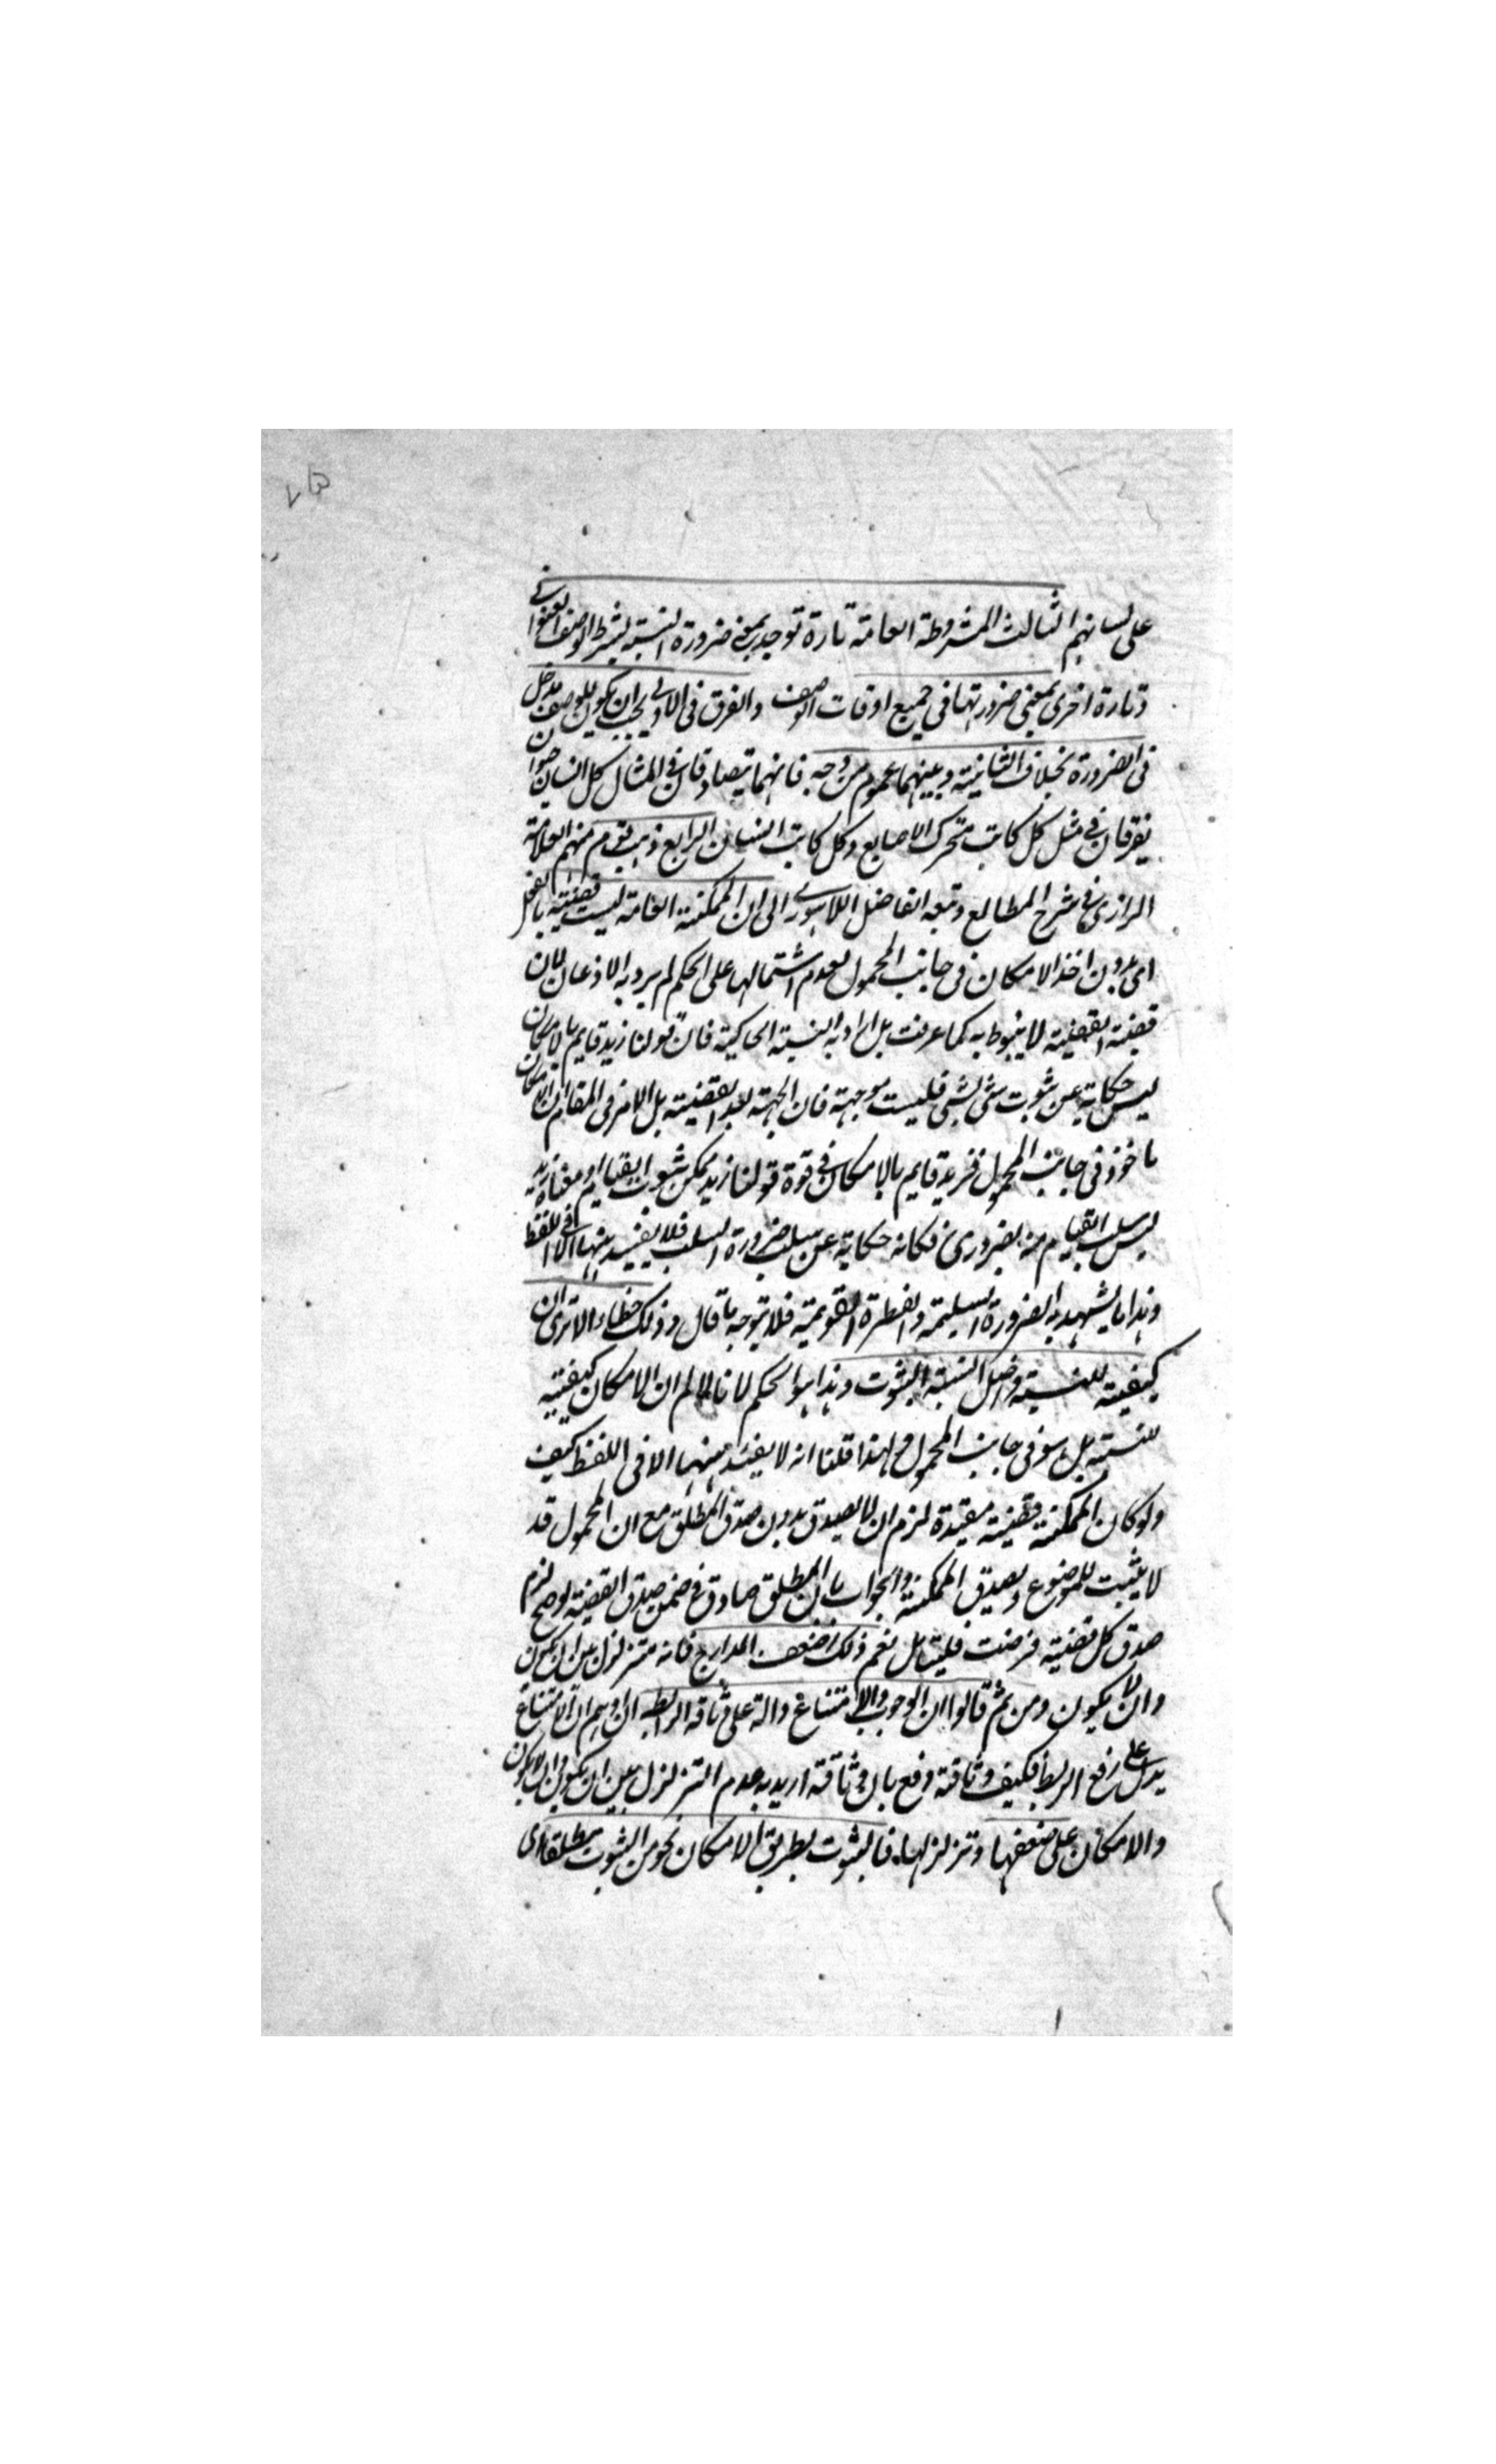 على لسانهم الثالث المشروطة العامة تارة توجد بمعنى ضرورة النسبة بشرط الوصف العنواني
وتارة اخرى بمعنى ضرورتها في جميع اوقات الوصف والفرق في الاولى يجب ان يكون للوصف مدخل
في الضرورة بخلاف الثانية وبينهما عموم من وجه فانهما يتصادقان في المثال كل انسان حيوان
يفرقان في مثل كل كاتب متحرك الاصابع وكل كاتب انسان الرابع ذهب قوم منهم العلامة
الرازي في شرح المطالع وتبعه الفاضل اللاهوري الى ان الممكنة العامة ليست قضية بالفعل
اي بدون اخذ الامكان في جانب المحمول لعدم اشتمالها على الحكم لم يرد به الاذعان لان
قضية القضية لا ينوط به كما عرفت بل اراد به النسبة الحاكية فان قولنا زيد قايم بالامكان
ليس حكاية عن ثبوت شي لشي فليست موجهة فان الجهة بعد القضية بل الامر في المقام ان الامكان
ماخوذ في جانب المحمول فزيد قايم بالامكان في قوة قولنا زيد ممكن ثبوت القيام او معناه زيد
ليس سلب القيام منه بضروري فكانه حكاية عن سلب ضرورة السلب فلا يفيد بينهما الا في اللفظ
وهذا ما يشهد به الضرورة السليمة والفطرة القويمة فلا يتوجه ما قال وذلك خطاء الا ترى ان
كيفية للنسبة واصل النسبة الثبوت وهذا هو الحكم لانا لا نسلم ان الامكان كيفية
للنسبة بل هو في جانب المحمول ولهذا قلنا انه لا يفيد بينهما الا في اللفظ كيف
ولو كان الممكنة قضية مقيدة لزم ان لا يصدق بدون صدق المطلق مع ان المحمول قد
لا يثبت للموضوع ويصدق الممكنة والجواب بان المطلق صادق في ضمن صدق القضية لو صح لزم
صدق كل قضية فرضت فليتامل نعم ذلك اضعف المدارج فانه متزلزل بين ان يكون
وان لا يكون ومن ثم قالوا ان الوجوب والامتناع دالة على وثاقة الرابطة ان اوهم ان الامتناع
يدل على رفع الربط فكيف وثاقة دفع بان وثاقة اريد به عدم التزلزل بين ان يكون وان لا يكون
والامكان على ضعفها وتزلزلها فالثبوت بطريق الامكان نحو من الثبوت مطلقا اي